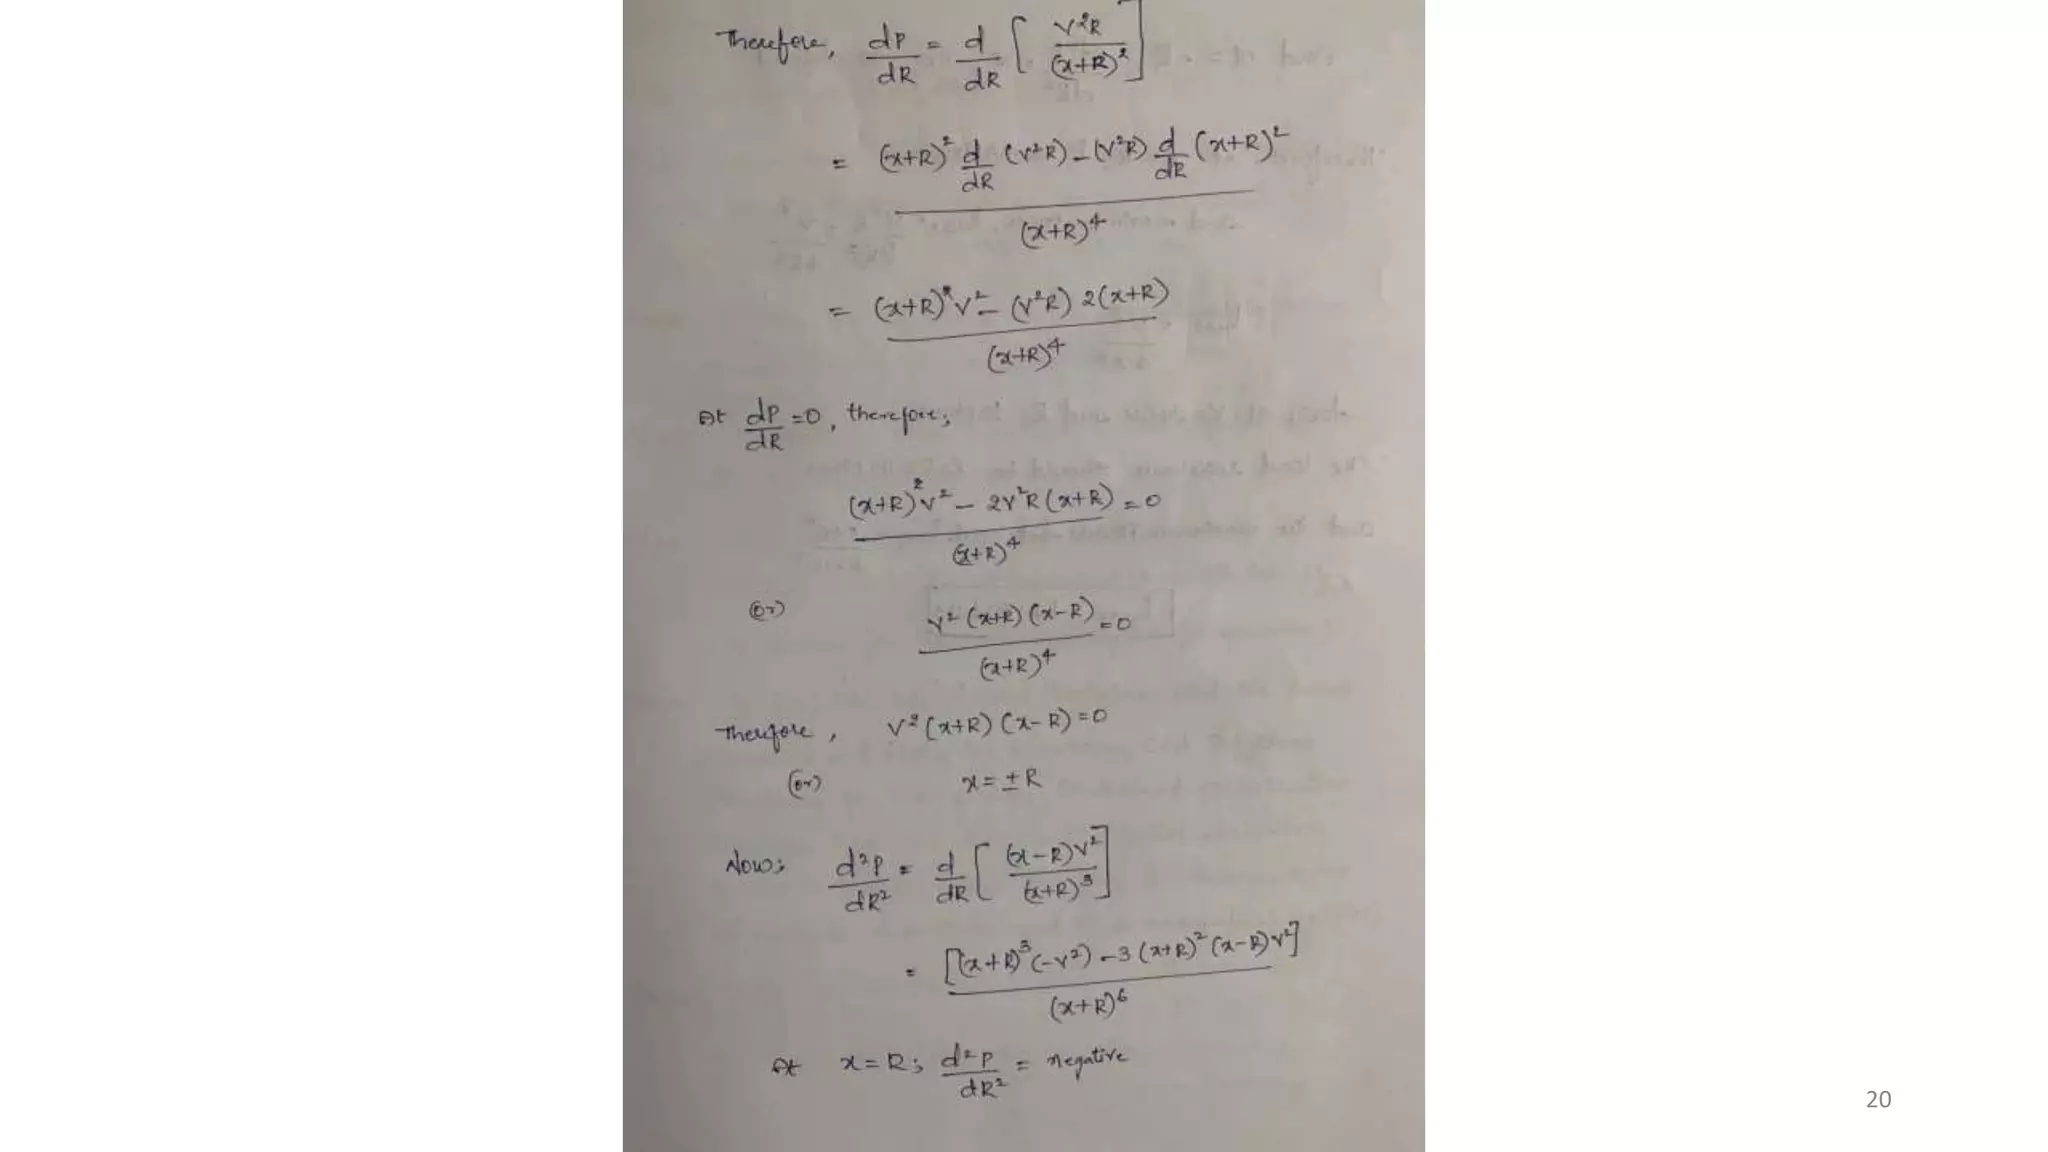 Therefore, dP/dR = d/dR [ V²R / (x+R)² ]
= (x+R)² d/dR (V²R) - (V²R) d/dR (x+R)² / (x+R)⁴
= (x+R)² V² - (V²R) 2(x+R) / (x+R)⁴
At dP/dR = 0, therefore;
(x+R)² V² - 2V²R (x+R) / (x+R)⁴ = 0
(or) V² (x+R) (x-R) / (x+R)⁴ = 0
Therefore, V² (x+R) (x-R) = 0
(or) x = ± R
Now; d²P/dR² = d/dR [ (x-R)V² / (x+R)³ ]
= [(x+R)³ (-V²) - 3 (x+R)² (x-R) V²] / (x+R)⁶
At x = R; d²P/dR² = negative
20